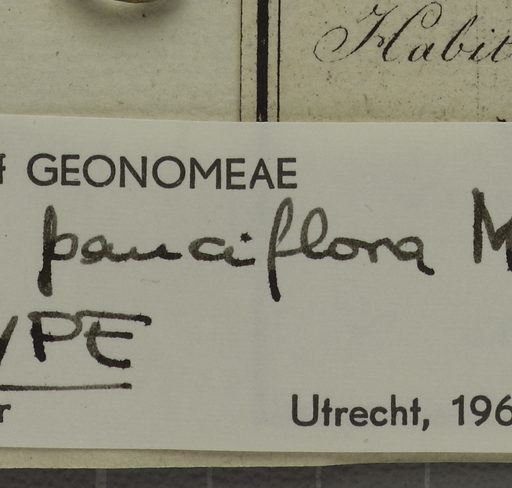 Habit
f GEONOMEAE
pauciflora M
YPE
r
Utrecht, 196